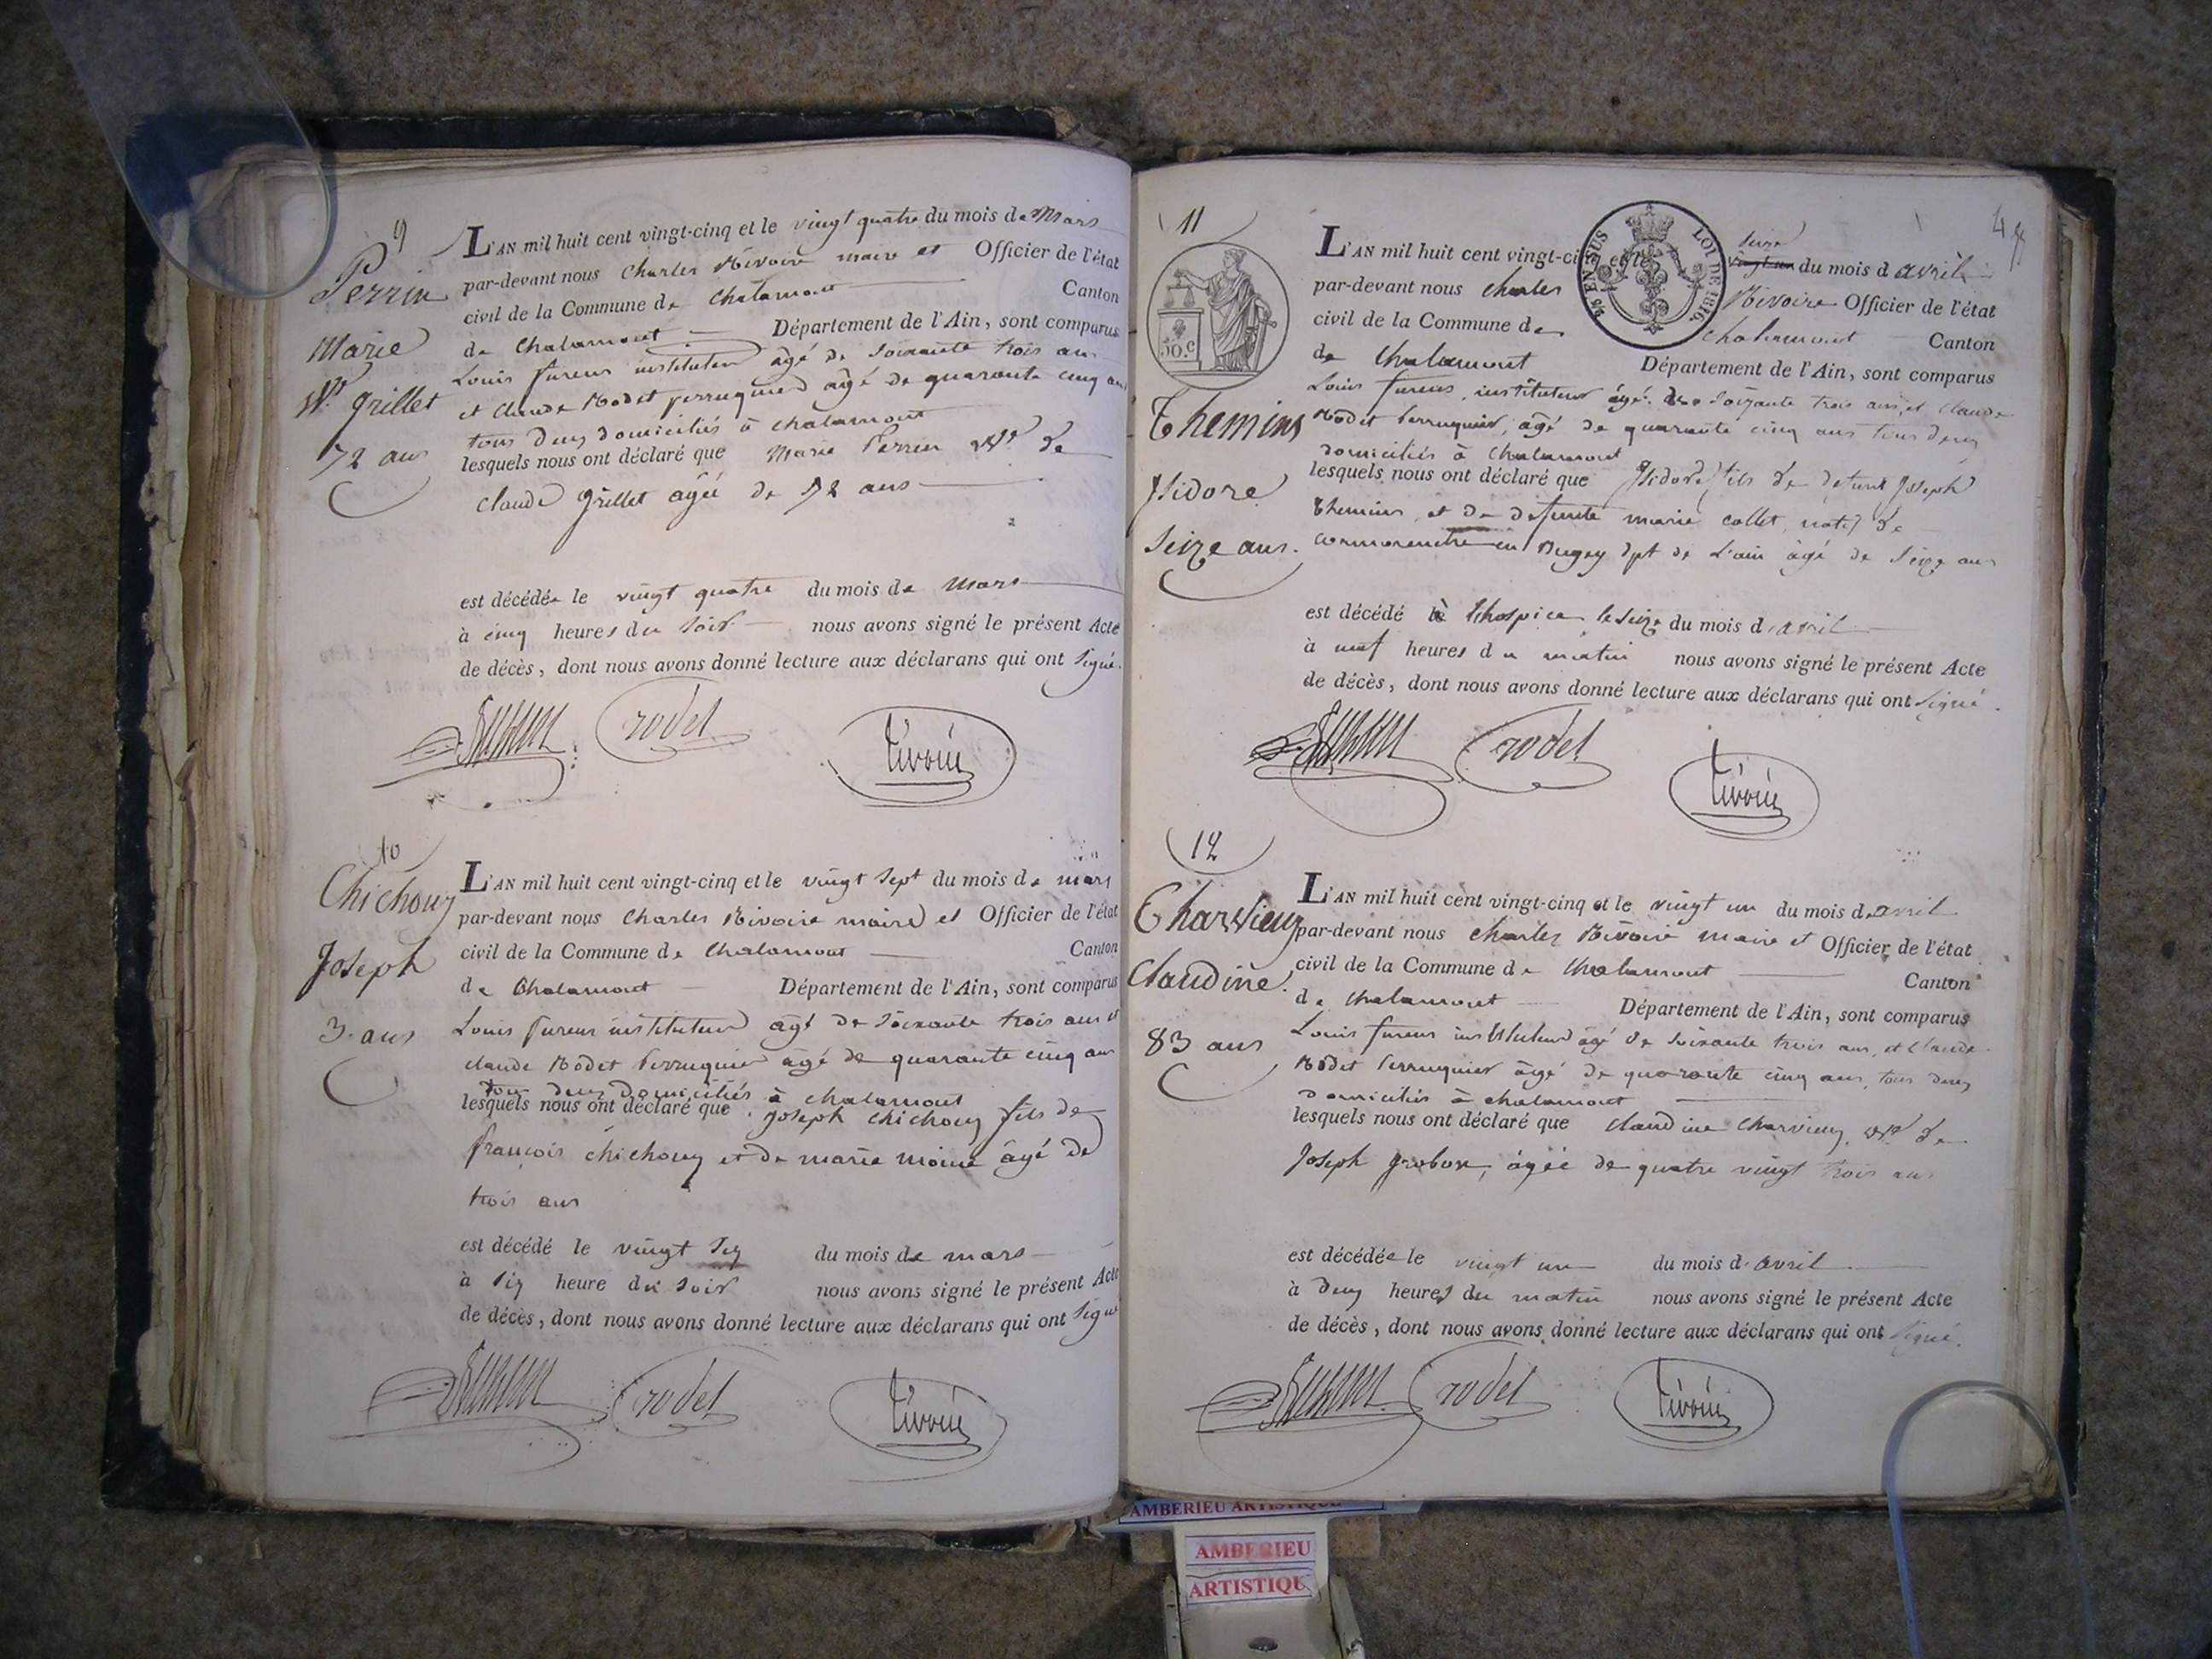 9
Perrin
Marie
Ve. Grillet
72 ans
L'AN mil huit cent vingt-cinq et le vingt quatre du mois de Mars
par-devant nous Charles Rivoire maire et Officier de l'état
civil de la Commune de Chalamont Canton
de Chalamont Département de l'Ain, sont comparus
Louis fureur instituteur âgé de soixante trois ans
et claude Rodet perruquier âgé de quarante cinq ans
tous deux domiciliés à chalamont
lesquels nous ont déclaré que Marie Perrin Ve. de
claude Grillet âgée de 72 ans
est décédée le vingt quatre du mois de Mars
à cinq heures du soir nous avons signé le présent Acte
de décès, dont nous avons donné lecture aux déclarans qui ont signé.
rodet
rivoire
10
Chichoux
Joseph
3. ans
L'AN mil huit cent vingt-cinq et le vingt sept du mois de mars
par-devant nous Charles Rivoire maire et Officier de l'état
civil de la Commune de Chalamont Canton
de Chalamont Département de l'Ain, sont comparus
Louis fureur instituteur âgé de soixante trois ans et
claude Rodet Perruquier âgé de quarante cinq ans
tous deux domiciliés à chalamont
lesquels nous ont déclaré que joseph chichoux fils de
françois chichoux et de marie moine âgé de
trois ans
est décédé le vingt six du mois de mars
à six heure du soir nous avons signé le présent Acte
de décès, dont nous avons donné lecture aux déclarans qui ont signé
rodet
rivoire
11
50.c
EN SUS
LOI DE 1816.
Themins
Isidore
Seize ans.
L'AN mil huit cent vingt-cinq et le seize vingt un du mois d avril
par-devant nous charles Rivoire Officier de l'état
civil de la Commune de chalamont Canton
de Chalamont Département de l'Ain, sont comparus
Louis fureur, instituteur âgé de soixante trois ans, et claude
Rodet Perruquier, âgé de quarante cinq ans tous deux
domiciliés à Chalamont
lesquels nous ont déclaré que Isidore fils de defunt Joseph
themins, et de defunte marie collet, natif de
cormorenche en Bugey dpt de L'ain âgé de seize ans
est décédé à l'hospice le seize du mois d avril
à neuf heures du matin nous avons signé le présent Acte
de décès, dont nous avons donné lecture aux déclarans qui ont signé.
rodet
rivoire
12
Charvieux
Claudine.
83 ans
L'AN mil huit cent vingt-cinq et le vingt un du mois d avril
par-devant nous charles Rivoire maire et Officier de l'état
civil de la Commune de Chalamont Canton
de chalamont Département de l'Ain, sont comparus
Louis fureur instituteur âgé de soixante trois ans, et claude
Rodet Perruquier âgé de quarante cinq ans, tous deux
domiciliés à chalamont
lesquels nous ont déclaré que claudine charvieux, Ve. de
Joseph Grobon, âgée de quatre vingt trois ans
est décédée le vingt un du mois d avril
à deux heures du matin nous avons signé le présent Acte
de décès, dont nous avons donné lecture aux déclarans qui ont signé.
rodet
rivoire
AMBERIEU ARTISTIQUE
AMBERIEU
ARTISTIQU